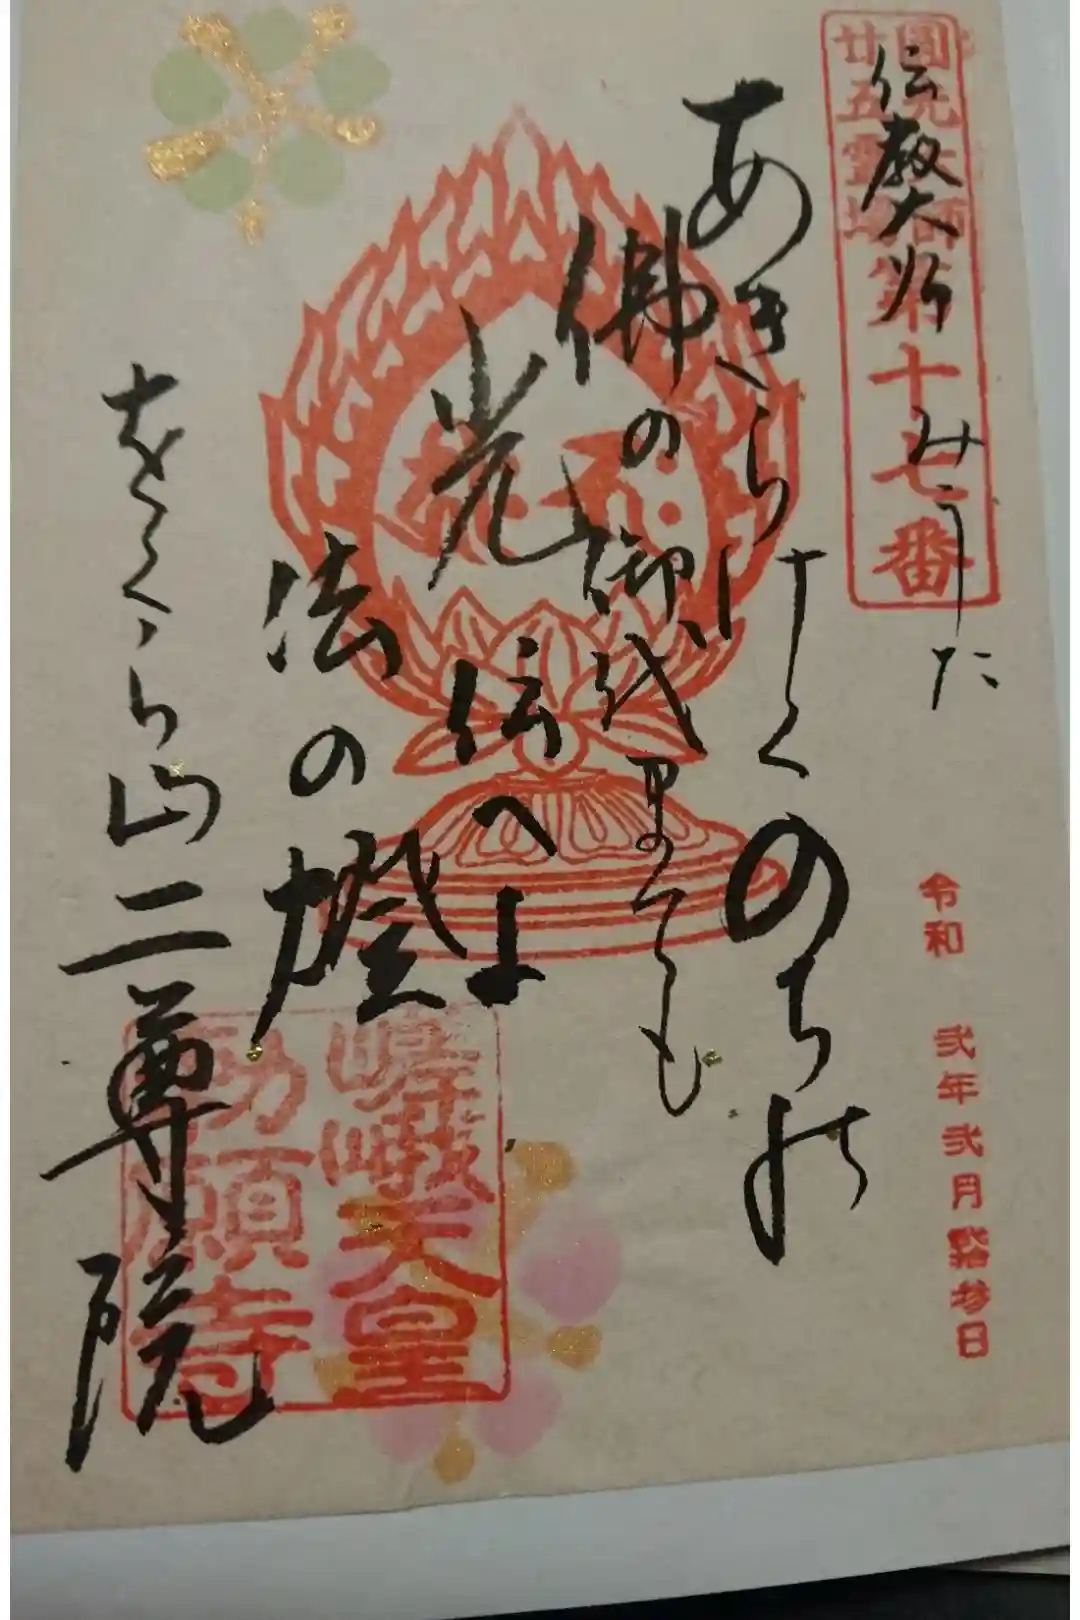 圓光大師
廿五霊場
第十七番
伝教大师 みうた
令和 弐年弐月拾参日
あきらけくのちの
佛の御代まても
光伝へよ
法の燈
をくら山二尊院
嵯峨天皇
勅願寺